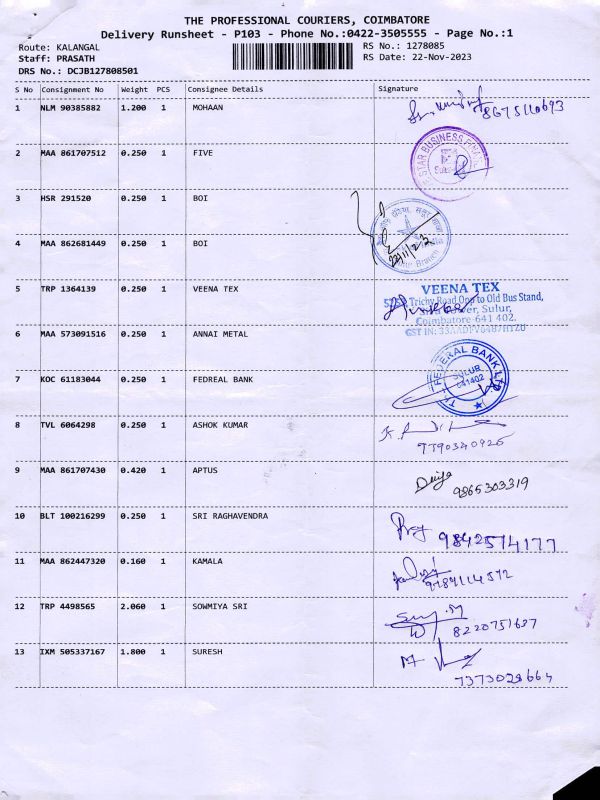 THE PROFESSIONAL COURIERS, COIMBATORE
Delivery Runsheet - P103 - Phone No.:0422-3505555 - Page No.:1
Route: KALANGAL RS No.: 1278085
Staff: PRASATH RS Date: 22-Nov-2023
DRS No.: DCJB127808501
S No Consignment No Weight PCS Consignee Details Signature
1 NLM 90385882 1.200 1 MOHAAN
2 MAA 861707512 0.250 1 FIVE
STAR BUSINESS
3 HSR 291520 0.250 1 BOI
4 MAA 862681449 0.250 1 BOI
5 TRP 1364139 0.250 1 VEENA TEX
VEENA TEX
Trichy Road Opp to Old Bus Stand,
Sulur,
Coimbatore-641 402.
6 MAA 573091516 0.250 1 ANNAI METAL
7 KOC 61183044 0.250 1 FEDREAL BANK
FEDERAL BANK LTD
SULUR
641402
8 TVL 6064298 0.250 1 ASHOK KUMAR
9790340926
9 MAA 861707430 0.420 1 APTUS
9865303319
10 BLT 100216299 0.250 1 SRI RAGHAVENDRA
9842574177
11 MAA 862447320 0.160 1 KAMALA
12 TRP 4498565 2.060 1 SOWMIYA SRI
8220751687
13 IXM 505337167 1.800 1 SURESH